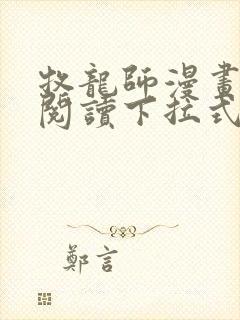 牧龍師漫畫
閱讀下拉式
鄭言